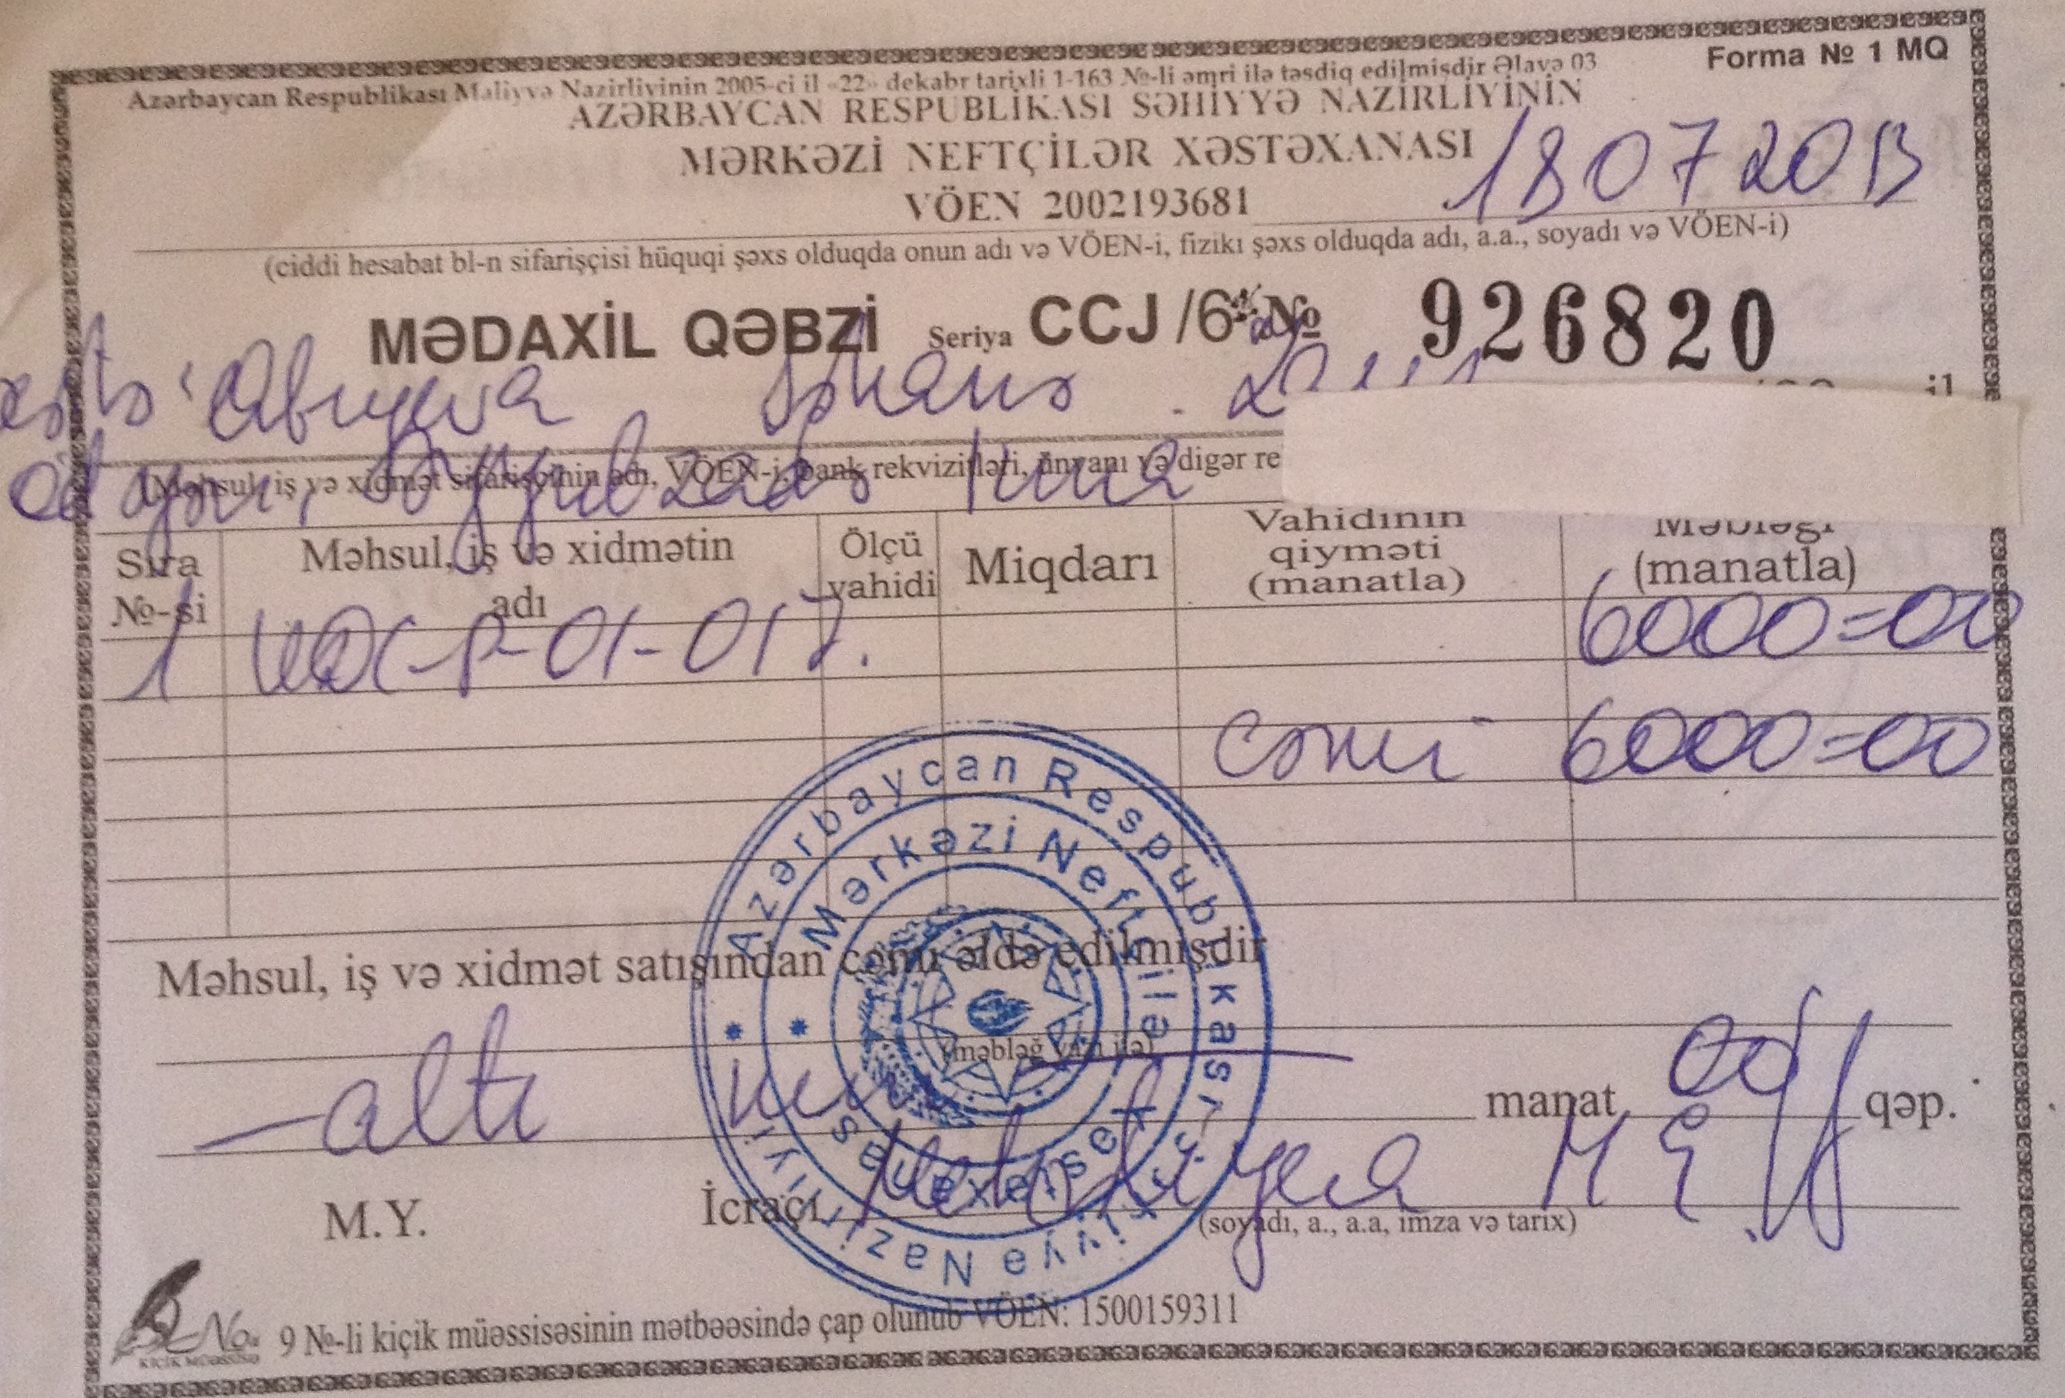 Forma № 1 MQ
Azərbaycan Respublikası Maliyyə Nazirliyinin 2005-ci il «22» dekabr tarixli 1-163 №-li əmri ilə təsdiq edilmişdir Əlavə 03
AZƏRBAYCAN RESPUBLİKASI SƏHİYYƏ NAZİRLİYİNİN
MƏRKƏZİ NEFTÇİLƏR XƏSTƏXANASI
18 07 2013
VÖEN 2002193681
(ciddi hesabat bl-n sifarişçisi hüquqi şəxs olduqda onun adı və VÖEN-i, fiziki şəxs olduqda adı, a.a., soyadı və VÖEN-i)
MƏDAXİL QƏBZİ Seriya CCJ /6 № 926820
Abıyeva
(Məhsul, iş və xidmət sifarişçinin adı, VÖEN-i, bank rekvizitləri, ünvanı və digər re
Sıra №-si
Məhsul, iş və xidmətin adı
Ölçü vahidi
Miqdarı
Vahidinin qiyməti (manatla)
Məbləği (manatla)
1 01-017. 6000=00
cəmi - 6000=00
Məhsul, iş və xidmət satışından cəmi əldə edilmişdir
(məbləğ yazı ilə)
-altı min manat 00 qəp.
M.Y. İcraçı M Ə
(soyadı, a., a.a, imza və tarix)
Azərbaycan Respublikası Səhiyyə Nazirliyi
Mərkəzi Neftçilər Xəstəxanası
KİÇİK MÜƏSSİSƏ
9 №-li kiçik müəssisəsinin mətbəəsində çap olunub VÖEN: 1500159311